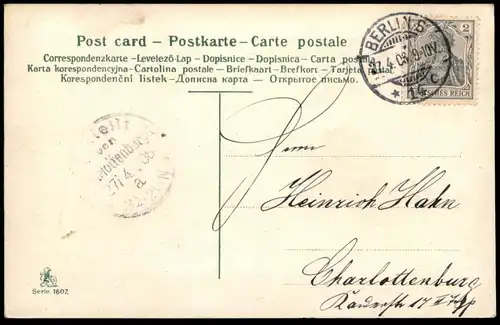 Post card – Postkarte – Carte postale
Correspondenzkarte – Levelező-Lap – Dopisnice – Dopisnica – Carta postala
Karta korespondencyjna – Cartolina postale – Briefkaart – Brefkort – Tarjeta postal
Korespondenční lístek – Дописна карта – Открытое письмо.
BERLIN,S
27.4.06.9-10V.
* 14 c
2
DEUTSCHES REICH
27/4 06
a
Herrn
Heinrich Hahn
Charlottenburg
17 II
Serie 1602